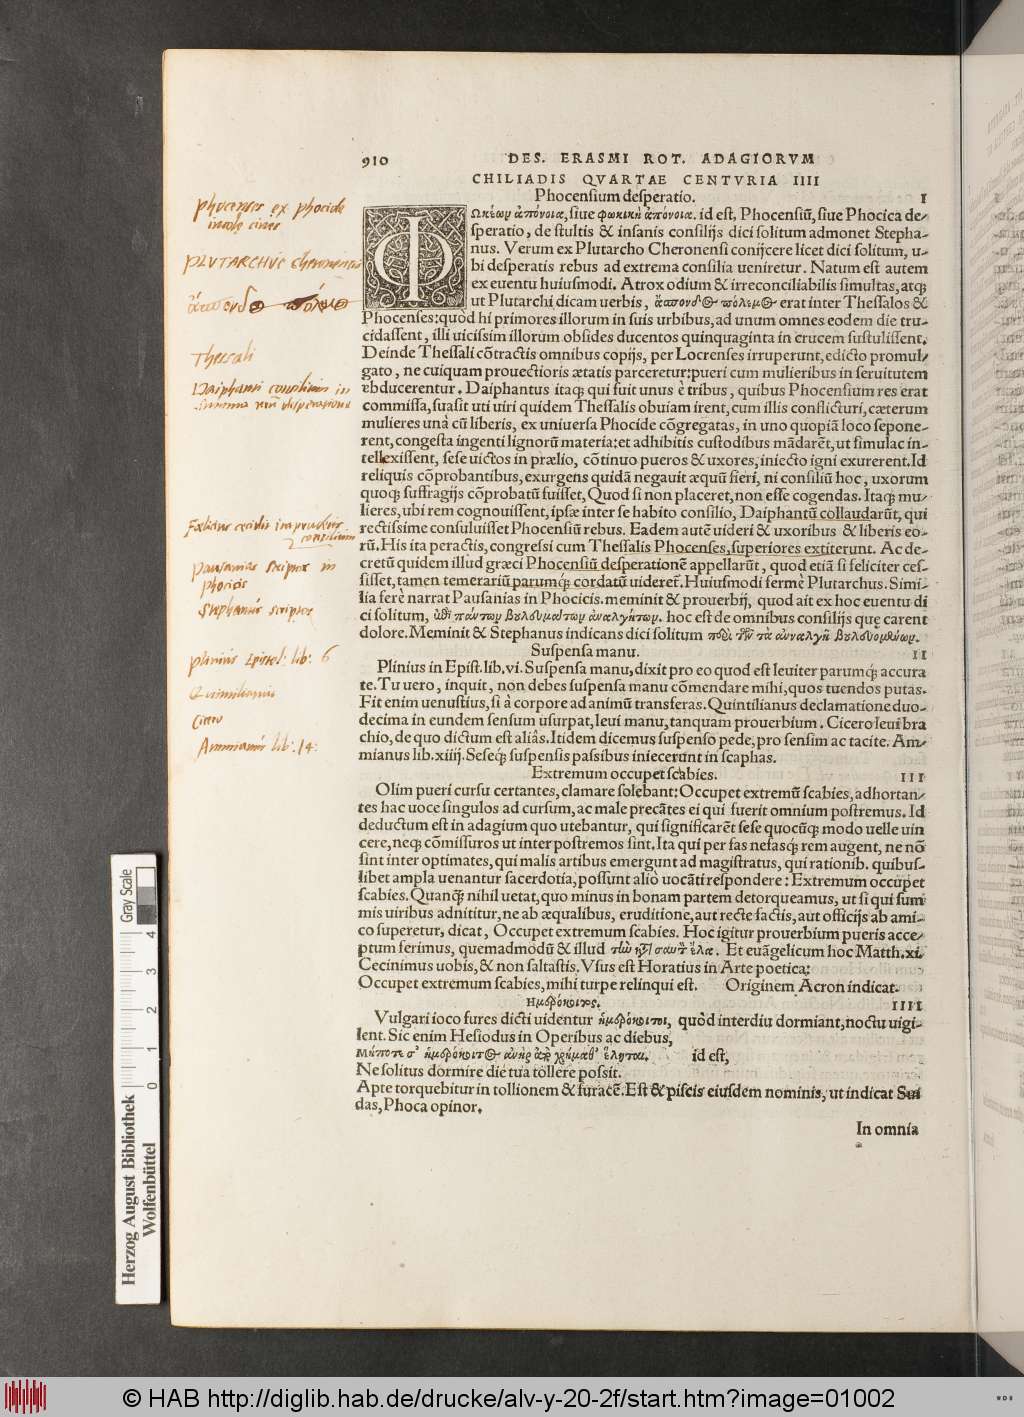 910 DES. ERASMI ROT. ADAGIORVM
CHILIADIS QVARTAE CENTVRIA IIII
Phocensium desperatio. I
Φωκέων ἀπόνοια, siue φωκικὴ ἀπόνοια. id est, Phocensiũ, siue Phocica de/
speratio, de stultis & insanis consilijs dici solitum admonet Stepha-
nus. Verum ex Plutarcho Cheronensi conijcere licet dici solitum, u-
bi desperatis rebus ad extrema consilia ueniretur. Natum est autem
ex euentu huiusmodi. Atrox odium & irreconciliabilis simultas, atq;
ut Plutarchi dicam uerbis, ἄσπονδος πόλεμος erat inter Thessalos &
Phocenses: quòd hi primores illorum in suis urbibus, ad unum omnes eodem die tru-
cidassent, illi uicissim illorum obsides ducentos quinquaginta in crucem sustulissent.
Deinde Thessali cõtractis omnibus copijs, per Locrenses irruperunt, edicto promul/
gato, ne cuiquam prouectioris ætatis parceretur: pueri cum mulieribus in seruitutem
abducerentur. Daiphantus itaq; qui fuit unus è tribus, quibus Phocensium res erat
commissa, suasit uti uiri quidem Thessalis obuiam irent, cum illis conflicturi, cæterum
mulieres unà cũ liberis, ex uniuersa Phocide cõgregatas, in uno quopiã loco sepone-
rent, congesta ingenti lignorũ materia: et adhibitis custodibus mãdarẽt, ut simulac in-
tellexissent, sese uictos in prælio, cõtinuo pueros & uxores, iniecto igni exurerent. Id
reliquis cõprobantibus, exurgens quidã negauit æquũ fieri, ni consiliũ hoc, uxorum
quoq; suffragijs cõprobatũ fuisset, Quod si non placeret, non esse cogendas. Itaq; mu/
lieres, ubi rem cognouissent, ipsæ inter se habito consilio, Daiphantũ collaudarũt, qui
rectissime consuluisset Phocensiũ rebus. Eadem autẽ uideri & uxoribus & liberis eo-
rũ. His ita peractis, congressi cum Thessalis Phocenses, superiores extiterunt. Ac de-
cretũ quidem illud græci Phocensiũ desperationẽ appellarũt, quod etiã si feliciter ces-
sisset, tamen temerariũ parumq; cordatũ uideret̃. Huiusmodi fermè Plutarchus. Simi-
lia ferè narrat Pausanias in Phocicis. meminit & prouerbij, quod ait ex hoc euentu di
ci solitum, ἐπὶ πάντων βουλευμάτων ἀναλγήτων. hoc est de omnibus consilijs quę carent
dolore. Meminit & Stephanus indicans dici solitum περὶ τῶν τὰ ἀναλγῆ βουλευομένων.
Suspensa manu. II
Plinius in Epist. lib. vi. Suspensa manu, dixit pro eo quod est leuiter parumq; accura
te. Tu uero, inquit, non debes suspensa manu cõmendare mihi, quos tuendos putas.
Fit enim uenustius, si à corpore ad animũ transferas. Quintilianus declamatione duo-
decima in eundem sensum usurpat, leui manu, tanquam prouerbium. Cicero leui bra
chio, de quo dictum est aliâs. Itidem dicemus suspenso pede, pro sensim ac tacite. Am/
mianus lib. xiiij. Seseq; suspensis passibus iniecerunt in scaphas.
Extremum occupet scabies. III
Olim pueri cursu certantes, clamare solebant: Occupet extremũ scabies, adhortan/
tes hac uoce singulos ad cursum, ac male precãtes ei qui fuerit omnium postremus. Id
deductum est in adagium quo utebantur, qui significarẽt sese quocũq; modo uelle uin
cere, neq; cõmissuros ut inter postremos sint. Ita qui per fas nefasq; rem augent, ne nõ
sint inter optimates, qui malis artibus emergunt ad magistratus, qui rationib. quibus-
libet ampla uenantur sacerdotia, possunt aliò uocãti respondere: Extremum occupet
scabies. Quanq̃ nihil uetat, quo minus in bonam partem detorqueamus, ut si qui sum
mis uiribus adnititur, ne ab æqualibus, eruditione, aut recte factis, aut officijs ab ami-
co superetur, dicat, Occupet extremum scabies. Hoc igitur prouerbium pueris acce-
ptum ferimus, quemadmodũ & illud τὴν κατὰ σαυτὸν ἔλα. Et euãgelicum hoc Matth. xi.
Cecinimus uobis, & non saltastis. Vsus est Horatius in Arte poetica:
Occupet extremum scabies, mihi turpe relinqui est. Originem Acron indicat.
Ἡμερόκοιτος. IIII
Vulgari ioco fures dicti uidentur ἡμερόκοιτοι, quòd interdiu dormiant, noctu uigi-
lent. Sic enim Hesiodus in Operibus ac diebus,
Μήποτε σ' ἡμερόκοιτος ἀνὴρ ἀπὸ χρήμαθ' ἕληται. id est,
Ne solitus dormire die tua tollere possit.
Apte torquebitur in tollionem & furacẽ. Est & piscis eiusdem nominis, ut indicat Sui
das, Phoca opinor.
In omnia
phocenses ex phocide
PLUTARCHUS Cheronensis
ἄσπονδος πόλεμος
Thessali
Daiphanti consilium in
summa rerum desperatione
consilium
Pausanias scriptor in
phocicis
Stephanus scriptor
plinius Epistol: lib: 6
Quintilianus
Cicero
Ammianus lib: 14:
Gray Scale
0 1 2 3 4
Herzog August Bibliothek
Wolfenbüttel
© HAB http://diglib.hab.de/drucke/alv-y-20-2f/start.htm?image=01002